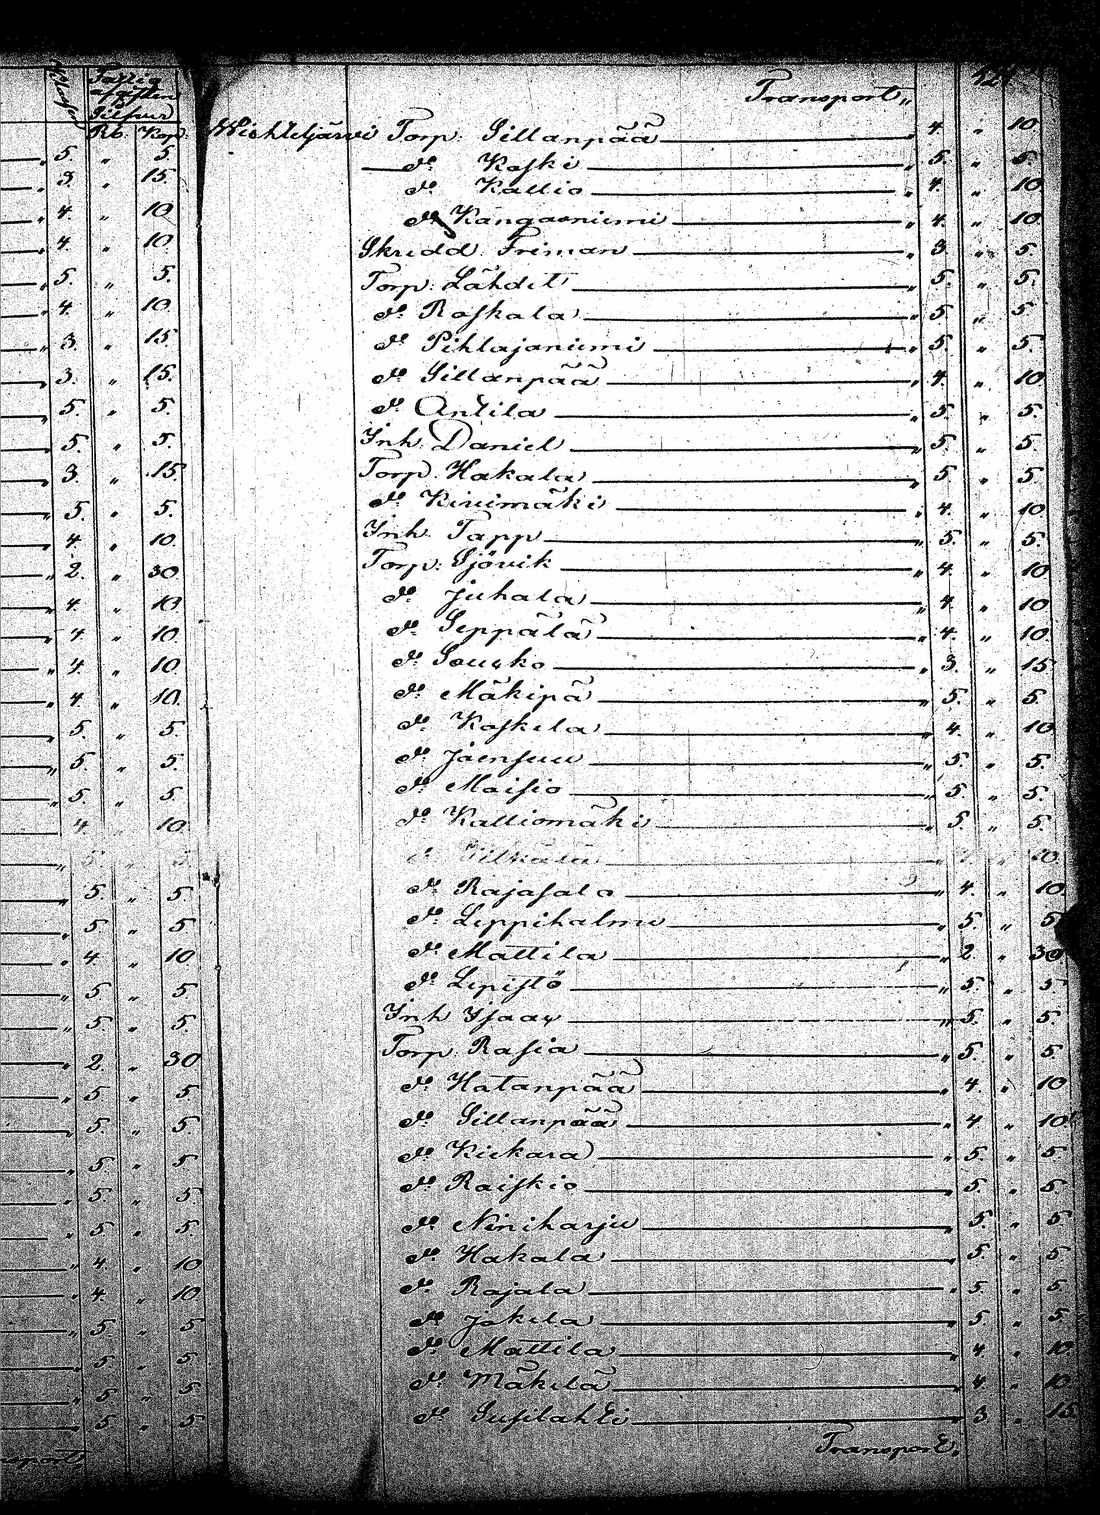 Klass
Årlig
afgiften
Silfver
Rb. Kop.
5. „ 5.
3. „ 15.
4. „ 10
4. „ 10
5. „ 5.
4. „ 10.
3. „ 15
3. „ 15.
5. „ 5.
5. „ 5.
3. „ 15.
5. „ 5.
4. „ 10.
2. „ 30
4. „ 10
4. „ 10.
4. „ 10
4. „ 10.
5. „ 5.
5. „ 5.
5. „ 5.
4. „ 10.
5. „ 5.
5. „ 5
4. „ 10
5 „ 5
5. „ 5.
2. „ 30
5. „ 5
5. „ 5.
5. „ 5
5. „ 5
5. „ 5
4. „ 10
4. „ 10
5. „ 5
5. „ 5
5 „ 5
5 „ 5
Transport„
Wichteljärvi Torp. Sillanpää „ 4. „ 10
do Koski „ 5. „ 5.
do Kallio „ 4. „ 10
do Kangasniemi „ 4. „ 10
Skrädd. Friman „ 3. „ 5.
Torp. Lähdet „ 5. „ 5
do Raskala „ 5. „ 5
do Pihlajaniemi „ 5. „ 5.
do Sillanpää „ 4. „ 10
do Antila „ 5 „ 5.
Inh. Daniel „ 5 „ 5.
Torp. Hakala „ 5 „ 5.
do Kivimäki „ 4. „ 10
Inh. Tapp „ 5. „ 5.
Torp. Sjövik „ 4. „ 10
do Juhala „ 4. „ 10
do Seppälä „ 4. „ 10
do „ 3. „ 15
do Mäkipä „ 5. „ 5.
do Koskela „ 4. „ 10
do Joensuu „ 5. „ 5.
do Maisio „ 5. „ 5.
do Kalliomäki „ 5. „ 5.
do „ 10.
do Rajasalo „ 4. „ 10
do Leppihalme „ 5. „ 5
do Mattila „ 2. „ 30
do Lepistö „ 5. „ 5
Inh. Isaac „ 5. „ 5.
Torp. Rasia „ 5. „ 5
do Hatanpää „ 4. „ 10
do Sillanpää „ 4 „ 10
do Kiekara „ 5. „ 5
do Raiskio „ 5. „ 5.
do Niniharju „ 5. „ 5
do Hakala „ 5. „ 5.
do Rajala „ 5. „ 5.
do Jokela „ 5 „ 5
do Mattila „ 4. „ 10
do Mäkelä „ 4. „ 10
do Susilahti „ 3. „ 15
Transport.